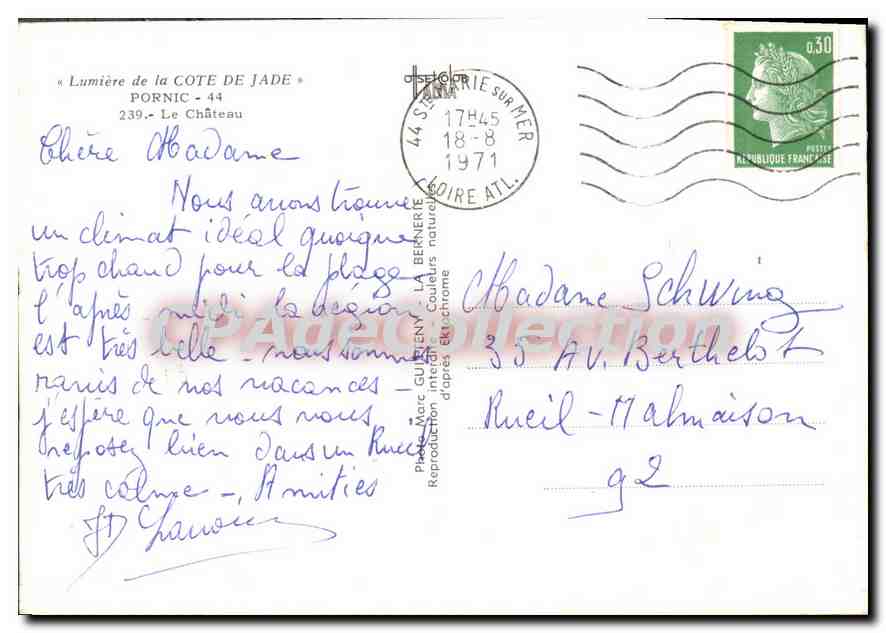 « Lumière de la COTE DE JADE »
PORNIC - 44
239.- Le Château
Chère Madame
Nous avons trouvé
un climat idéal quoique
trop chaud pour la plage
l'après-midi - la région
est très belle - nous sommes
ravis de nos vacances -
j'espère que vous vous
reposez bien dans un Rueil
très calme -. Amitiés
44 STE MARIE SUR MER
17H45
18-8
1971
LOIRE ATL.
0,30
POSTES
RÉPUBLIQUE FRANÇAISE
Photo Marc GUITTENY - LA BERNERIE
Reproduction interdite - Couleurs naturelles
d'après Ektachrome
Madame Schwing
35 AV. Berthelot
Rueil-Malmaison
92
CPAgeCollection